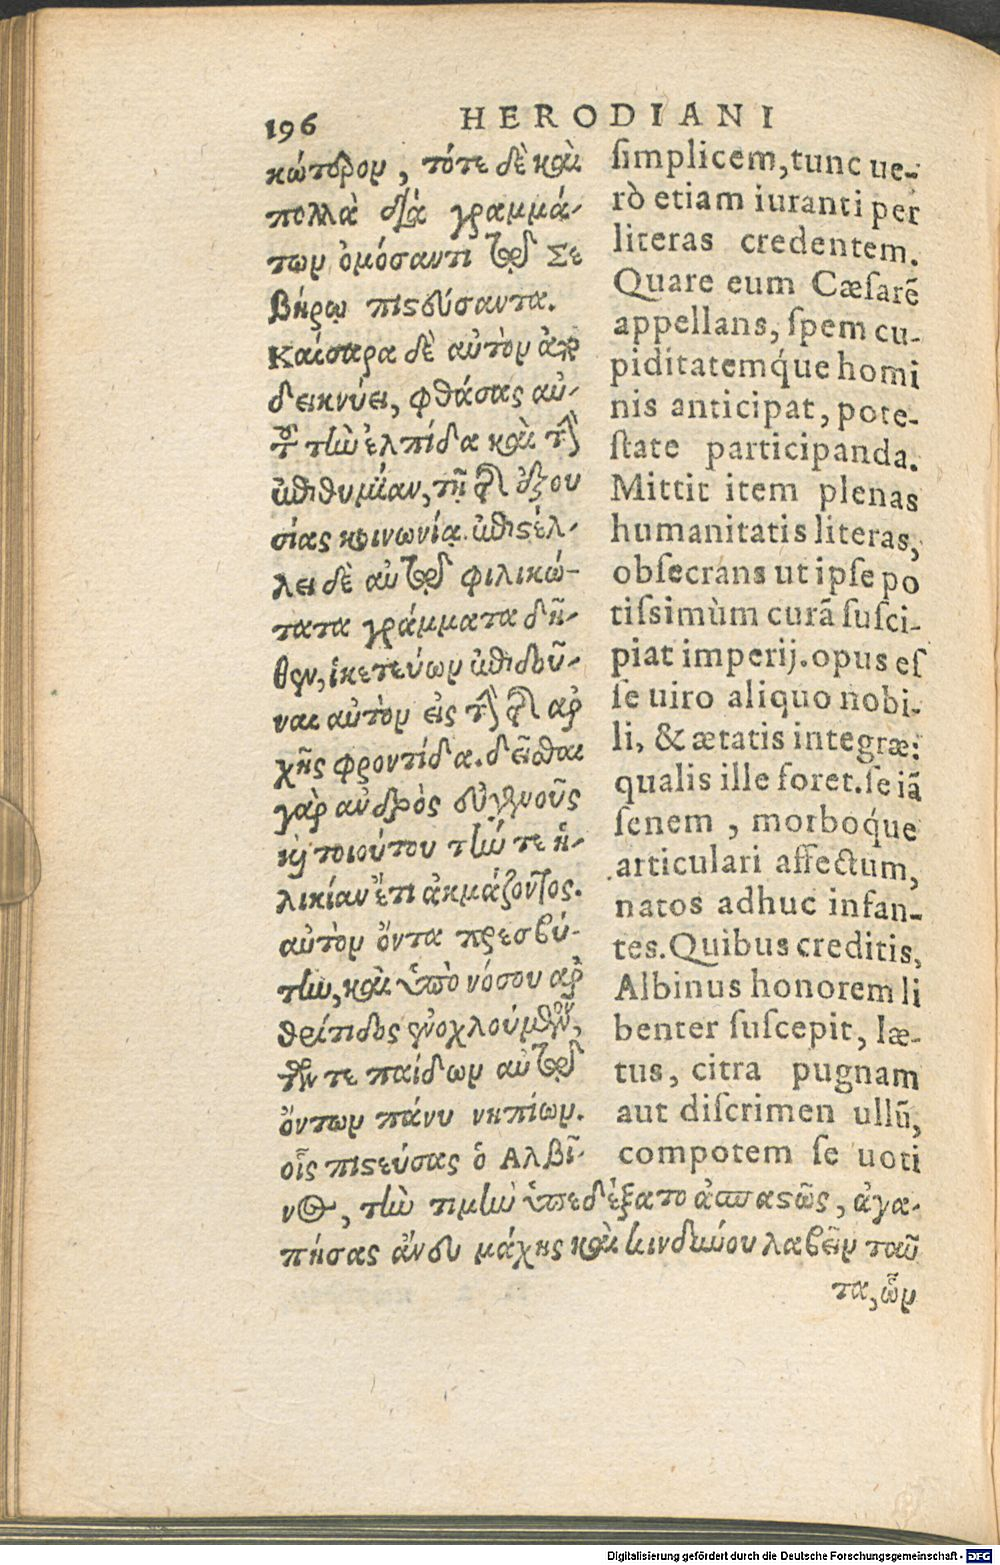 196 HERODIANI
κώτερον, τότε δὲ καὶ
πολλὰ διὰ γραμμά-
των ὀμόσαντι τῷ Σε
βήρῳ πιστεύσαντα.
Καίσαρα δὲ αὐτὸν ἀπο
δεικνύει, φθάσας αὐ-
τοῦ τὴν ἐλπίδα καὶ τὴν
ἐπιθυμίαν, τῇ τῆς ἐξου
σίας κοινωνίᾳ. ἐπιστέλ-
λει δὲ αὐτῷ φιλικώ-
τατα γράμματα δῆ-
θεν, ἱκετεύων ἐπιδοῦ-
ναι αὐτὸν εἰς τὴν τῆς ἀρ
χῆς φροντίδα. δεῖσθαι
γὰρ ἀνδρὸς εὐγενοῦς
καὶ τοιούτου τήν τε ἡ-
λικίαν ἔτι ἀκμάζοντος.
αὐτὸν ὄντα πρεσβύ-
την, καὶ ὑπὸ νόσου ἀρ
θρίτιδος ἐνοχλούμενον,
τῶν τε παίδων αὐτῷ
ὄντων πάνυ νηπίων.
οἷς πιστεύσας ὁ Αλβῖ-
νος, τὴν τιμὴν ὑπεδέξατο ἀσπαστῶς, ἀγα-
πήσας ἄνευ μάχης καὶ κινδύνου λαβεῖν ταῦ
τα, ὧν
simplicem, tunc ue-
rò etiam iuranti per
literas credentem.
Quare eum Cæsarē
appellans, spem cu-
piditatemq́ue homi
nis anticipat, pote-
state participanda.
Mittit item plenas
humanitatis literas,
obsecrans ut ipse po
tissimùm curā susci-
piat imperij. opus es
se uiro aliquo nobi-
li, & ætatis integræ:
qualis ille foret. se iā
senem, morboq́ue
articulari affectum,
natos adhuc infan-
tes. Quibus creditis,
Albinus honorem li
benter suscepit, læ-
tus, citra pugnam
aut discrimen ullū,
compotem se uoti
Digitalisierung gefördert durch die Deutsche Forschungsgemeinschaft - DFG